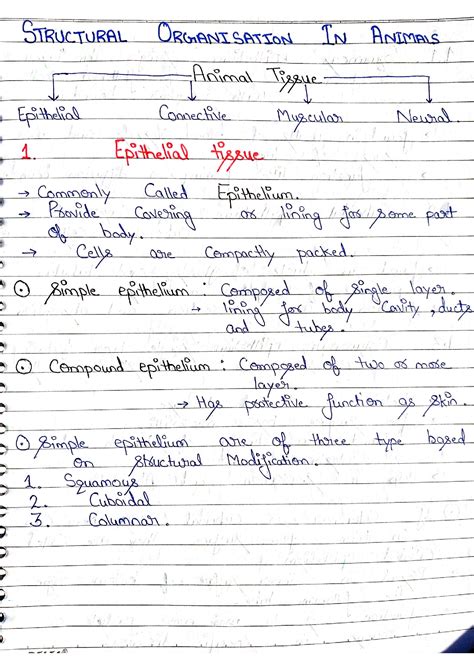 STRUCTURAL ORGANISATION IN ANIMALS
Animal Tissue
Epithelial Connective Muscular Neural
1. Epithelial tissue
→ Commonly Called Epithelium.
→ Provide Covering or lining for some part
of body.
→ Cells are Compactly packed.
⊙ Simple epithelium : Composed of single layer.
→ lining for body Cavity, ducts
and tubes.
⊙ Compound epithelium : Composed of two or more
layer.
→ Has protective function as skin.
⊙ Simple epithelium are of three type based
on Structural Modification.
1. Squamous
2. Cuboidal
3. Columnar.